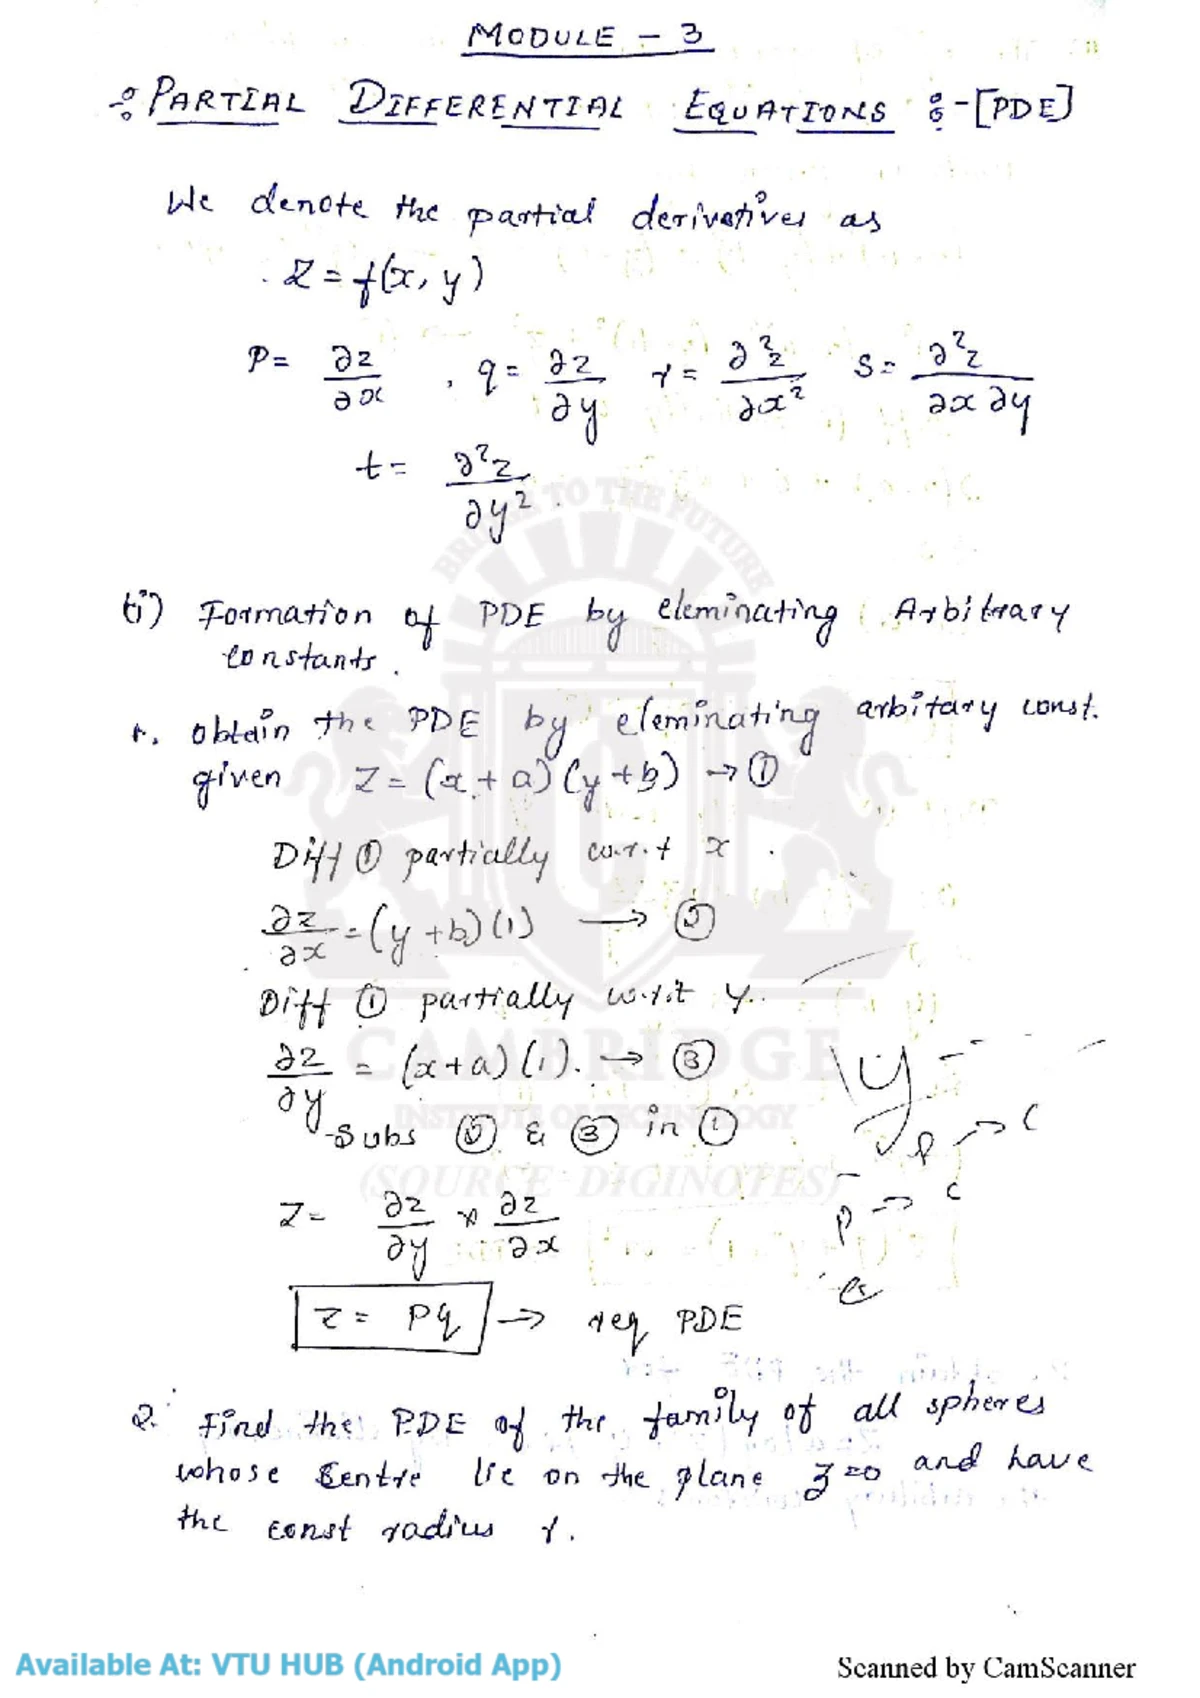 MODULE - 3
PARTIAL DIFFERENTIAL EQUATIONS :-[PDE]
We denote the partial derivatives as
Z = f(x, y)
P = ∂z/∂x , q = ∂z/∂y r = ∂²z/∂x² S = ∂²z/∂x ∂y
t = ∂²z/∂y²
BRIDGE TO THE FUTURE
(i) Formation of PDE by eleminating Arbitrary
constants.
1. Obtain the PDE by eleminating arbitary const.
given Z = (x + a) (y + b) → ①
Diff ① partially w.r.t x .
∂z/∂x = (y + b) (1) → ②
Diff ① partially w.r.t y.
∂z/∂y = (x + a) (1). → ③
CAMBRIDGE
INSTITUTE OF TECHNOLOGY
Subs ② & ③ in ①
(SOURCE DIGINOTES)
Z = ∂z/∂y × ∂z/∂x
z = pq → req PDE
2. Find the PDE of the family of all spheres
whose Centre lie on the plane z=0 and have
the const radius r.
Available At: VTU HUB (Android App)
Scanned by CamScanner